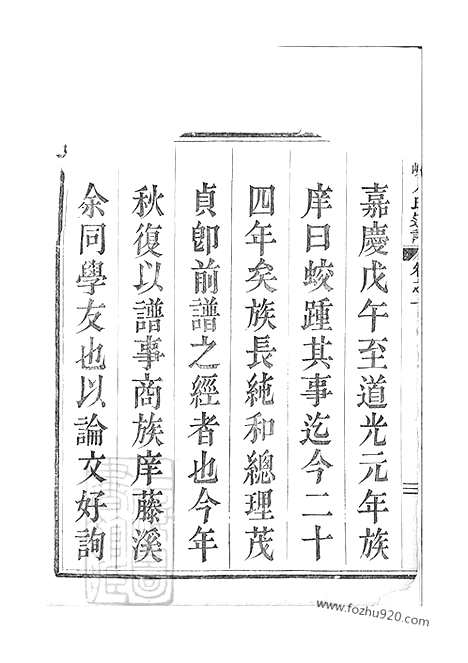 嘉慶戊午至道光元年族
庠曰蛟踵其事迄今二十
四年矣族長純和總理茂
貞卽前譜之經者也今年
秋復以譜事商族庠藤溪
余同學友也以論文好詢
www.fozhu920.com